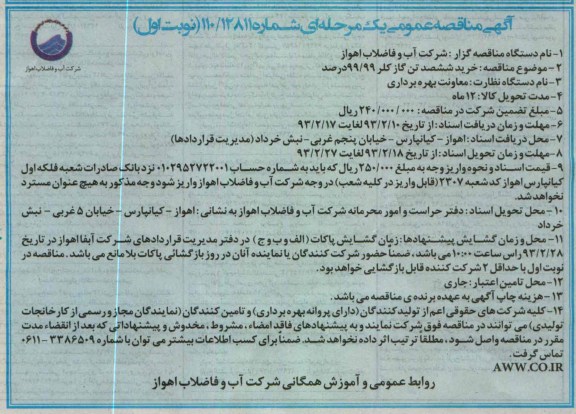 آگهی مناقصه عمومی یک مرحله‌ای شماره ۱۱۰/۱۲۸۱۱ (نوبت اول)
شرکت آب و فاضلاب اهواز
۱- نام دستگاه مناقصه گزار: شرکت آب و فاضلاب اهواز
۲- موضوع مناقصه: خرید ششصد تن گاز کلر ۹۹/۹۹درصد
۳- نام دستگاه نظارت: معاونت بهره برداری
۴- مدت تحویل کالا: ۱۲ ماه
۵- مبلغ تضمین شرکت در مناقصه: ۲۴۰/۰۰۰/۰۰۰ ریال
۶- مهلت و زمان دریافت اسناد: از تاریخ ۹۳/۲/۱۰ لغایت ۹۳/۲/۱۷
۷- محل دریافت اسناد: اهواز - کیانپارس - خیابان پنجم غربی - نبش خرداد (مدیریت قراردادها)
۸- مهلت و زمان تحویل اسناد: از تاریخ ۹۳/۲/۱۸ لغایت ۹۳/۲/۲۷
۹- قیمت اسناد و نحوه واریز وجه به مبلغ ۲۵۰/۰۰۰ ریال که باید به شماره حساب ۰۱۰۲۹۵۲۷۲۲۰۰۱ نزد بانک صادرات شعبه فلکه اول
کیانپارس اهواز کد شعبه ۲۳۰۷ (قابل واریز در کلیه شعب) در وجه شرکت آب و فاضلاب اهواز واریز شود وجه مذکور به هیچ عنوان مسترد
نخواهد شد.
۱۰- محل تحویل اسناد: دفتر حراست و امور محرمانه شرکت آب و فاضلاب اهواز به نشانی: اهواز - کیانپارس - خیابان ۵ غربی - نبش
خرداد
۱۱- محل و زمان گشایش پیشنهادها: زمان گشایش پاکات (الف و ب و ج) در دفتر مدیریت قراردادهای شرکت آبفا اهواز در تاریخ
۹۳/۲/۲۸ راس ساعت ۱۰:۰۰ می باشد، ضمناً حضور شرکت کنندگان یا نماینده آنان در روز بازگشائی پاکات بلامانع می باشد. مناقصه در
نوبت اول با حداقل ۲ شرکت کننده قابل بازگشایی خواهد بود.
۱۲- محل تامین اعتبار: جاری
۱۳- هزینه چاپ آگهی به عهده برنده ی مناقصه می باشد.
۱۴- کلیه شرکت های حقوقی اعم از تولید کنندگان (دارای پروانه بهره برداری) و تامین کنندگان (نمایندگان مجاز و رسمی از کارخانجات
تولیدی) می توانند در مناقصه فوق شرکت نمایند و به پیشنهادهای فاقد امضاء، مشروط، مخدوش و پیشنهاداتی که بعد از انقضاء مدت
مقرر در مناقصه واصل شود، مطلقا ترتیب اثر داده نخواهد شد. ضمناً برای کسب اطلاعات بیشتر می توان با شماره ۳۳۸۶۵۰۹ -۰۶۱۱
تماس گرفت.
AWW.CO.IR
روابط عمومی و آموزش همگانی شرکت آب و فاضلاب اهواز